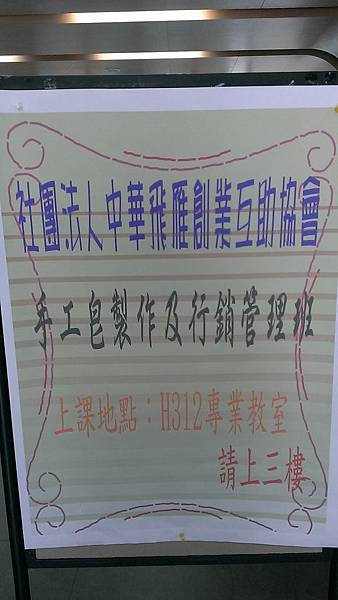 社團法人中華飛雁創業互助協會
手工皂製作及行銷管理班
上課地點：H312專業教室
請上三樓